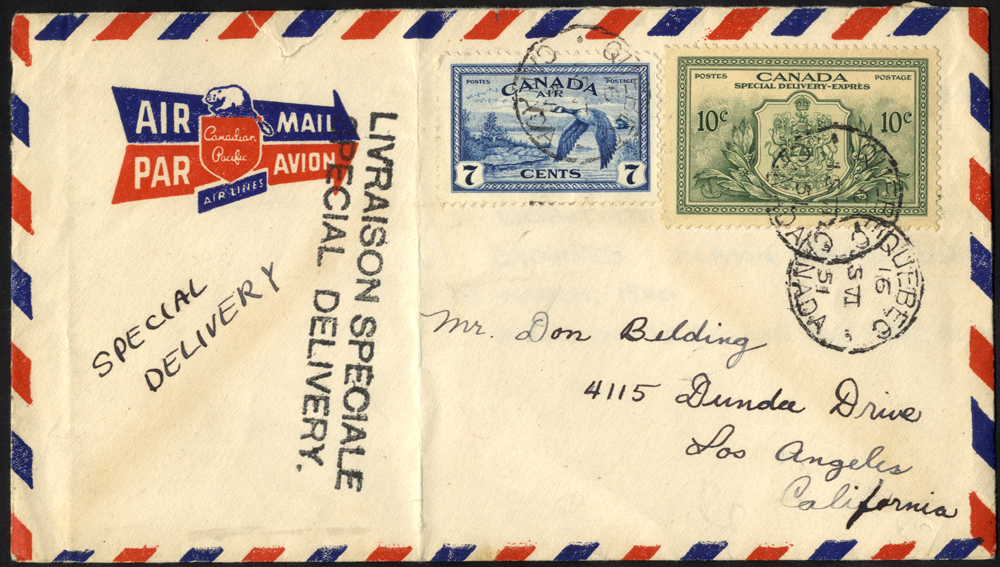 AIR MAIL
PAR AVION
Canadian
Pacific
AIR-LINES
POSTES CANADA POSTAGE
AIR
7 CENTS 7
POSTES CANADA POSTAGE
SPECIAL DELIVERY-EXPRÈS
10c 10c
QUEBEC
16
VI
51
CANADA
LIVRAISON SPECIALE
SPECIAL DELIVERY.
SPECIAL
DELIVERY
Mr. Don Belding
4115 Dunda Drive
Los Angeles
California